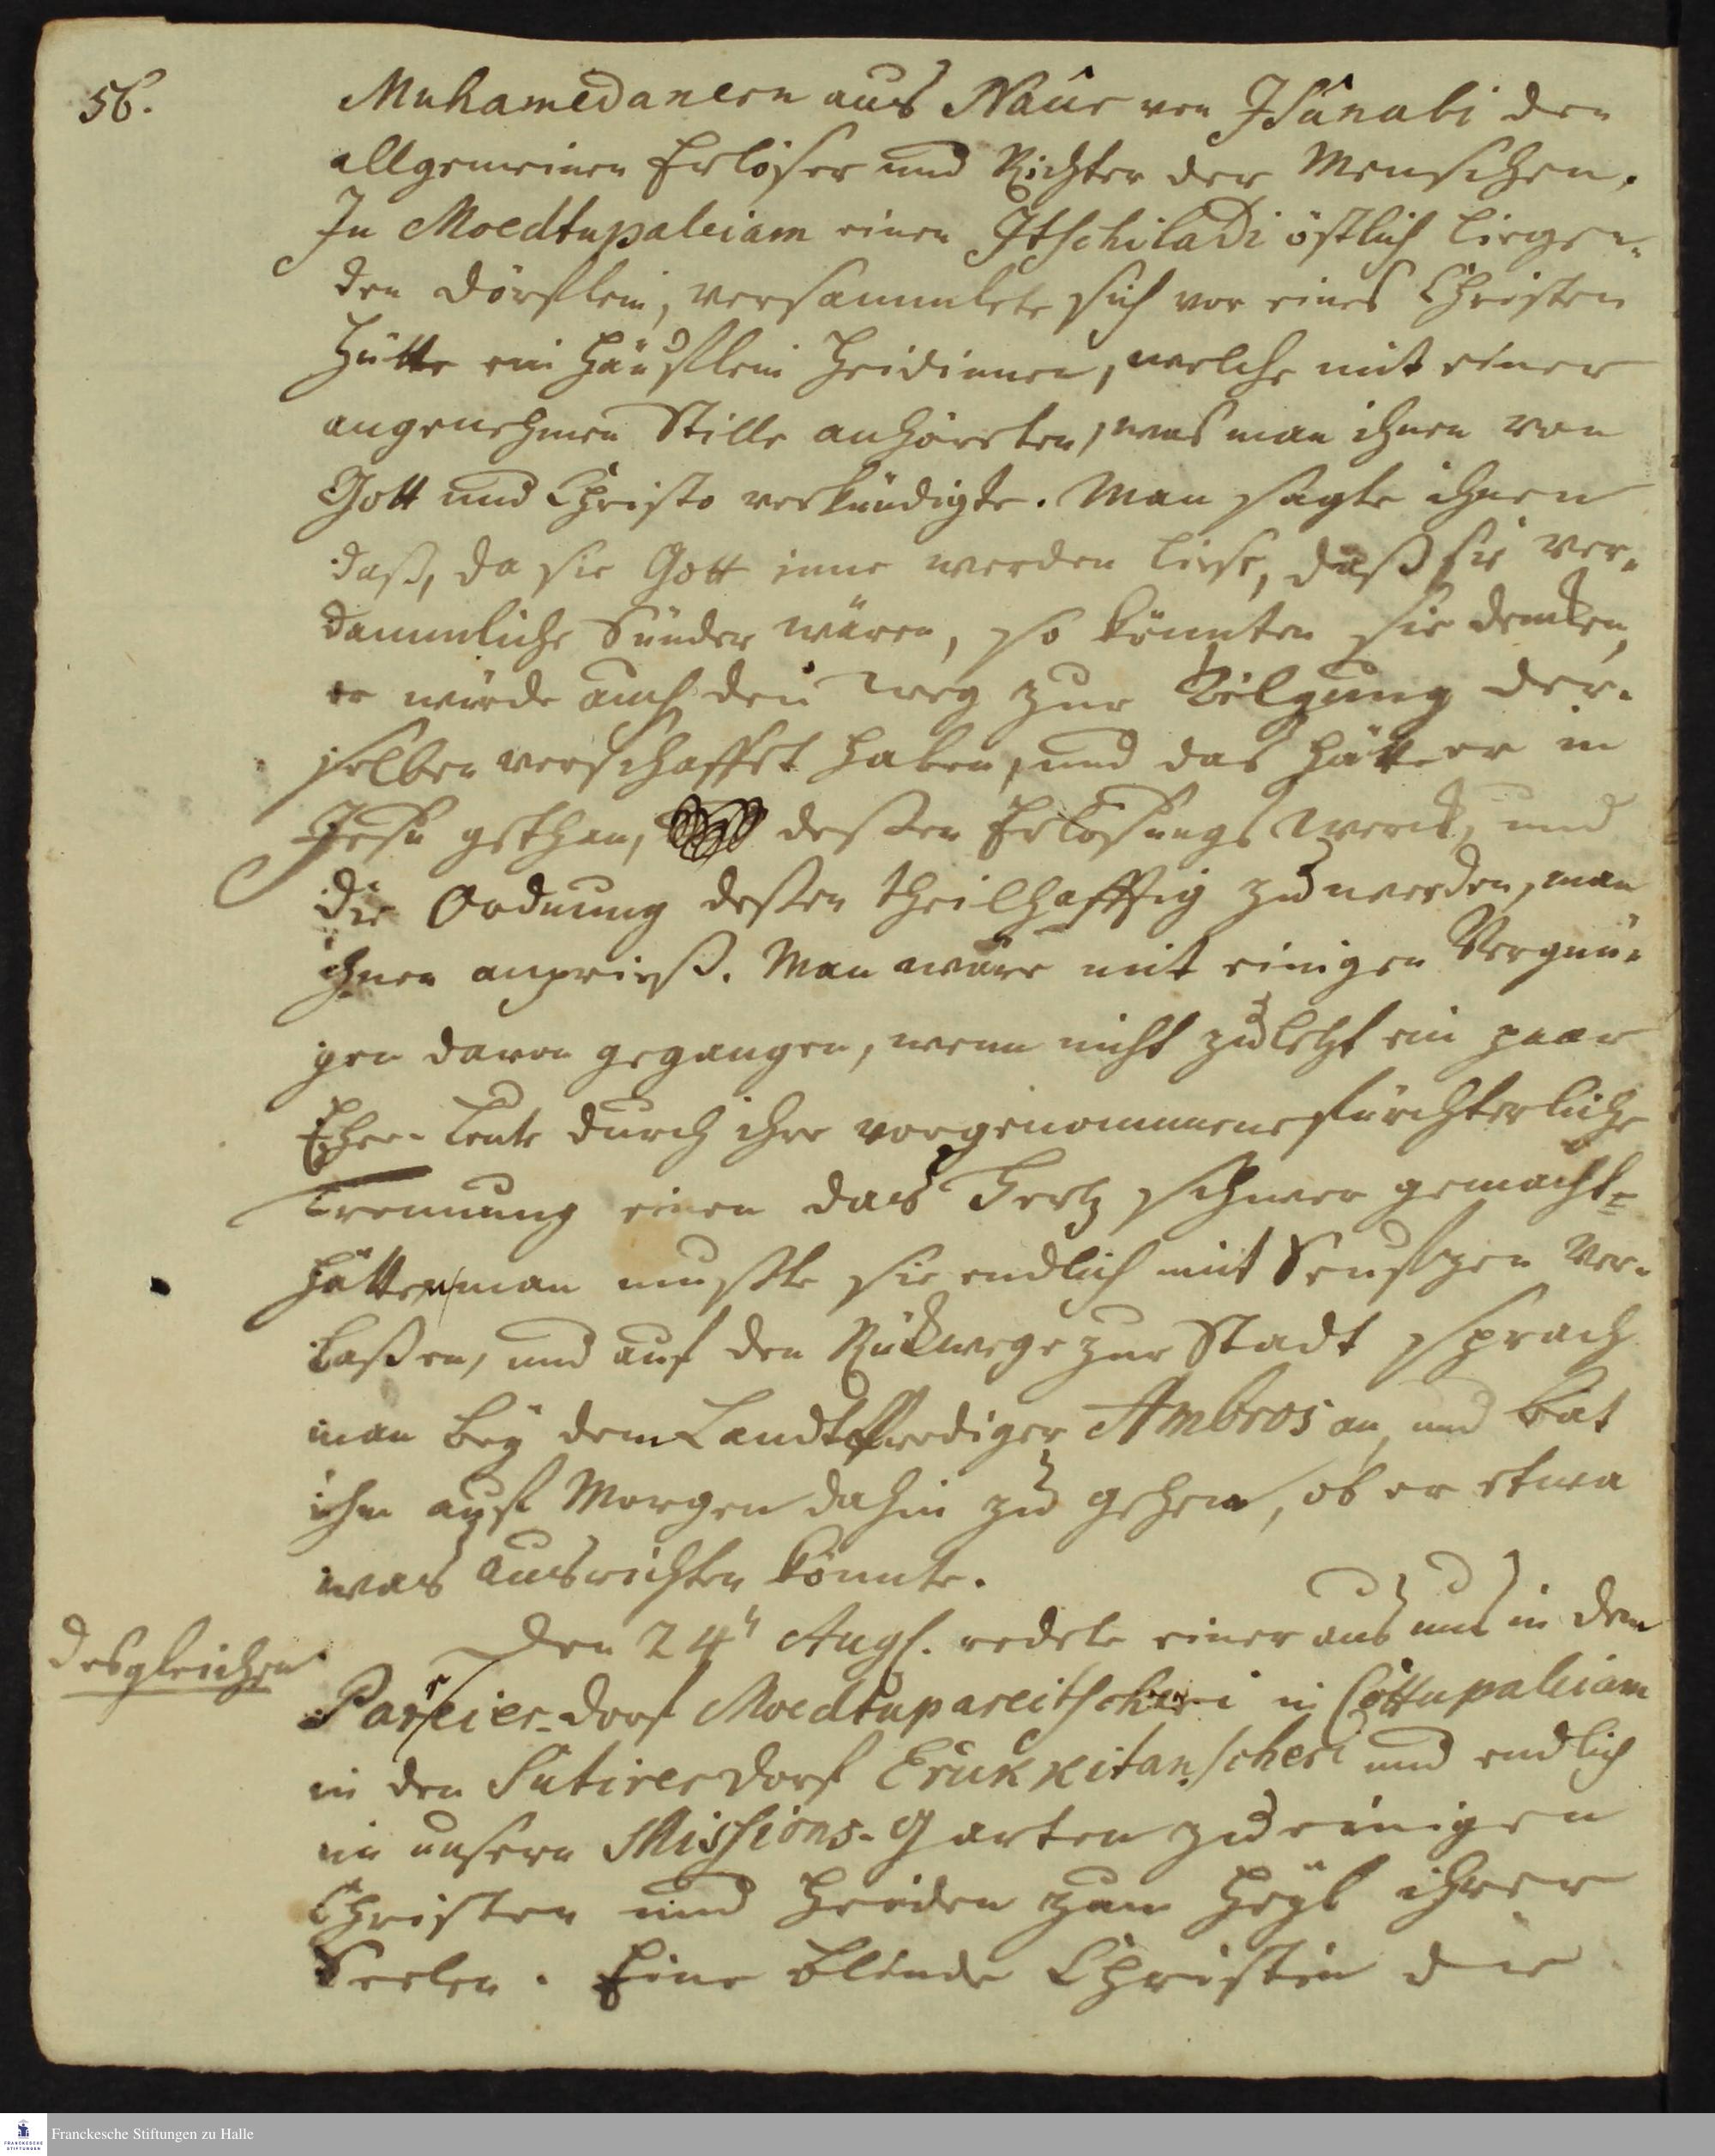 56.
Muhamedanern aus Nâur von Jsânabi den
allgemeinen Erlöser und Richter der Menschen.
In Moedtupaleiam einen Itschiladi östlich liegen-
den Dörflein, versammlete sich vor eines Christen
Hütte ein Häuflein Heidinnen, welche mit einer
angenehmen Stille anhöreten, was man ihnen von
Gott und Christo verkündigte. Man sagte ihnen
daß, da sie Gott inne werden liese, daß sie ver-
dammliche Sünder wären, so könnten sie dencken,
er würde auch den Weg zur Tilgung der-
selben verschaffet haben, und das hätte er in
Jesu gethan, deßen Erlösungs Werck, und
die Ordnung deßen theilhafftig zu werden, man
ihnen anprieß. Man wäre mit einigen Vergnü-
gen davon gegangen, wenn nicht zuletzt ein paar
Ehe-Leute durch ihre vorgenommene fürchterliche
Trennung einen das Hertz schwer gemacht
hätten, man mußte sie endlich mit Seufzen ver-
laßen, und auf den Rückwege zur Stadt sprach
man bey dem Landtprediger Ambros an, und bat
ihn auf Morgen dahin zu gehen, ob er etwa
was ausrichten könnte.
desgleichen
Den 24n Augs. redete einer aus uns in dem
Parreier-dorf Moedtupareitscheri in Cottupaleiam
in den Sutirer dorf Erukkitanscheri und endlich
in unsern Missions-Garten zu einigen
Christen und Heiden zum Heyl ihrer
Seelen. Eine blinde Christin die
Franckesche Stiftungen zu Halle